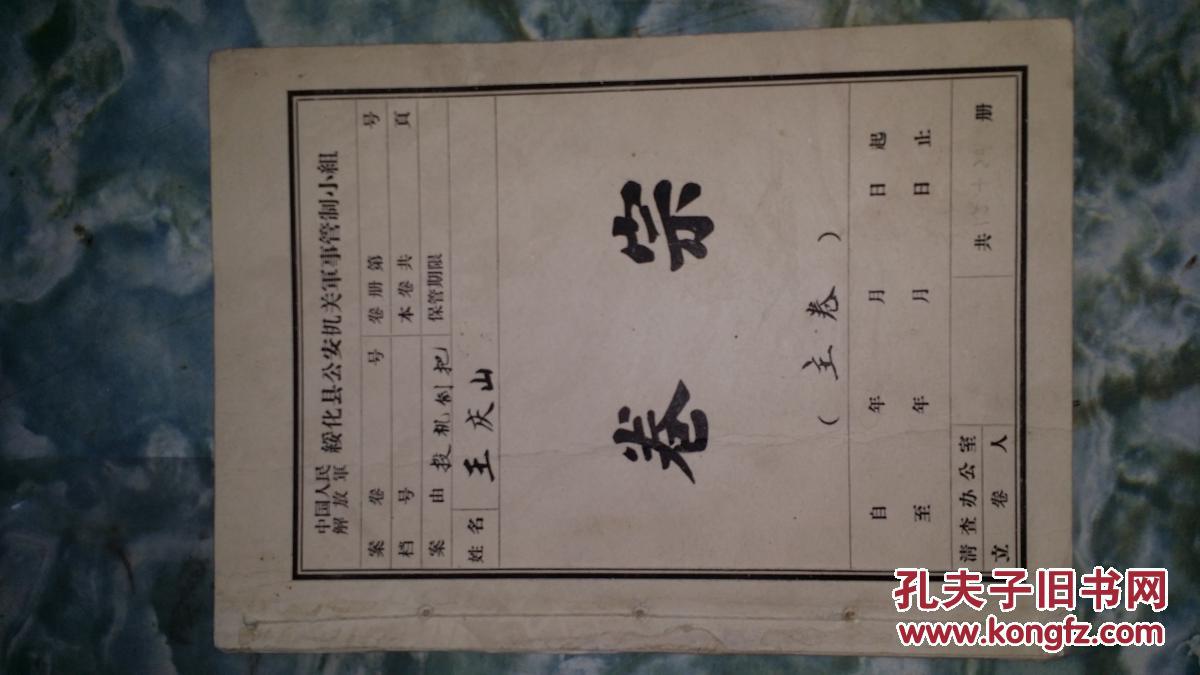 中国人民
解放軍
綏化县公安机关軍事管制小組
案卷号 卷册第号
档号 本卷共頁
案由 投机倒把 保管期限
姓名 王庆山
卷宗
(主卷)
自年月日起
至年月日止
清查办公室
立卷人 共册
孔夫子旧书网
www.kongfz.com